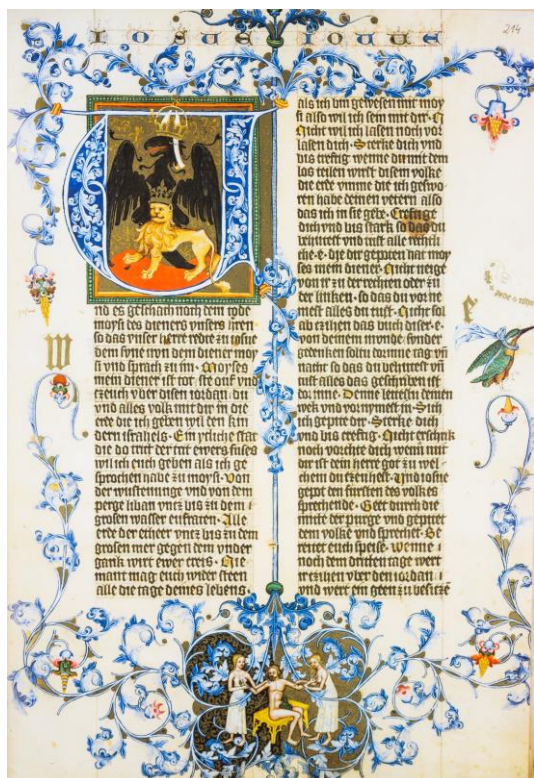 IOSUE IOSUE
214
nd es geschach nach dem tode
moysi des dieners vnsers herren
so das vnser herre redte zu iosue
dem sone nvn dem diener moy
si vnd sprach zu im · Moyses
mein diener ist tot · ste auf vnd
czeuch vber disen iordan · du
vnd alles volk mit dir in die
erde die ich geben wil den kin
dern israhels · Ein ycliche stat
die do trit der trit ewers fuses
wil ich euch geben als ich ge
sprochen habe zu moysi · Von
der wustenunge vnd von dem
perge liban vncz bis zu dem
grosen wasser eufraten · Alle
erde der etheer vncz bis zu dem
grosen mer gegen dem vnder
gank wirt ewer ereis · Nie
mant mag euch wider steen
alle die tage deines lebens ·
als ich bin gewesen mit moy
si also wil ich sein mit dir ·
Nicht wil ich lasen noch vor
lasen dich · Sterke dich vnd
bis creftig · wenne du mit dem
los teilen wirst disem volke
die erde vmme die ich geswo
ren habe deinen vetern also
das ich in sie gebe · Creftige
dich vnd bis stark so das du
behutest vnd tust alle
e · die dir gepoten hat moy
ses mein diener · Nicht neige
von ir zu der rechten oder zu
der linken · so das du vor ne
mest alles du tust · Nicht sol
ab czihen das buch diser · e ·
von deinem munde · sonder
gedenken soltu dorinne tag vnd
nacht so das du behutest vnd
tust alles das geschriben ist
dorinne · Denne
wek vnd vornymest in · Sich
ich gepite dir · Sterke dich
vnd bis creftig · Nicht erschrik
noch vorchte dich wenn mit
dir ist dein herre got zu wel
chem du czeuhest · Vnd iosue
gepot den fursten des volkes
sprechende · Geet durch die
mitte der purge vnd gepitet
dem volke vnd sprechet · Be
reitet euch speise · Wenne
noch dem dritten tage wert
ir czihen vber den iordan
vnd wert ein geen zu besicze
w
e